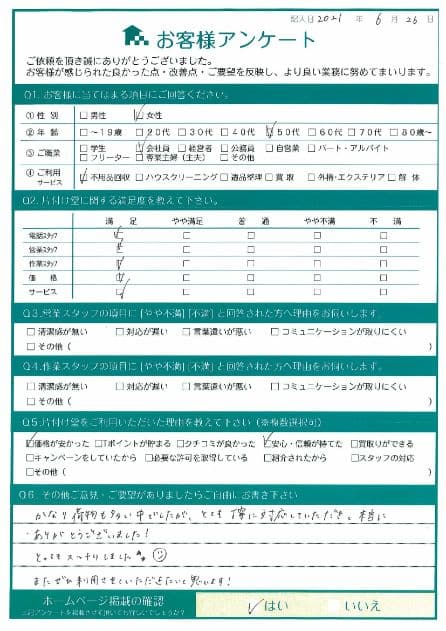 記入日 2021 年 6 月 26 日
お客様アンケート
ご依頼を頂き誠にありがとうございました。
お客様が感じられた良かった点・改善点・ご要望を反映し、より良い業務に努めてまいります。
Q1. お客様に当てはまる項目にご回答ください。
① 性 別 □男性 ☑女性
② 年 齢 □～19歳 □20代 □30代 □40代 ☑50代 □60代 □70代 □80歳～
③ ご職業 □学生 ☑会社員 □経営者 □公務員 □自営業 □パート・アルバイト
□フリーター □専業主婦（主夫） □その他
④ ご利用サービス ☑不用品回収 □ハウスクリーニング □遺品整理 □買取 □外構・エクステリア □解体
Q2. 片付け堂に関する満足度を教えて下さい。
満 足 やや満足 普 通 やや不満 不 満
電話スタッフ ☑ □ □ □ □
営業スタッフ ☑ □ □ □ □
作業スタッフ ☑ □ □ □ □
価 格 ☑ □ □ □ □
サービス ☑ □ □ □ □
Q3. 営業スタッフの項目に［やや不満］［不満］と回答された方へ理由をお伺いします。
□清潔感が無い □対応が遅い □言葉遣いが悪い □コミュニケーションが取りにくい
□その他（
Q4. 作業スタッフの項目に［やや不満］［不満］と回答された方へ理由をお伺いします。
□清潔感が無い □対応が遅い □言葉遣いが悪い □コミュニケーションが取りにくい
□その他（
Q5. 片付け堂をご利用いただいた理由を教えて下さい（※複数選択可）
☑価格が安かった □Tポイントが貯まる □クチコミが良かった ☑安心・信頼が持てた □買取りができる
□キャンペーンをしていたから □必要な許可を取得している □紹介されたから □スタッフの対応
□その他（
Q6. その他ご意見・ご要望がありましたらご自由にお書き下さい
かなり荷物も多い中でしたが、とても丁寧に対応していただき、本当に
ありがとうございました!
とってもスッキリしました
またぜひ利用させていただきたいと思います!
ホームページ掲載の確認
☑はい □いいえ